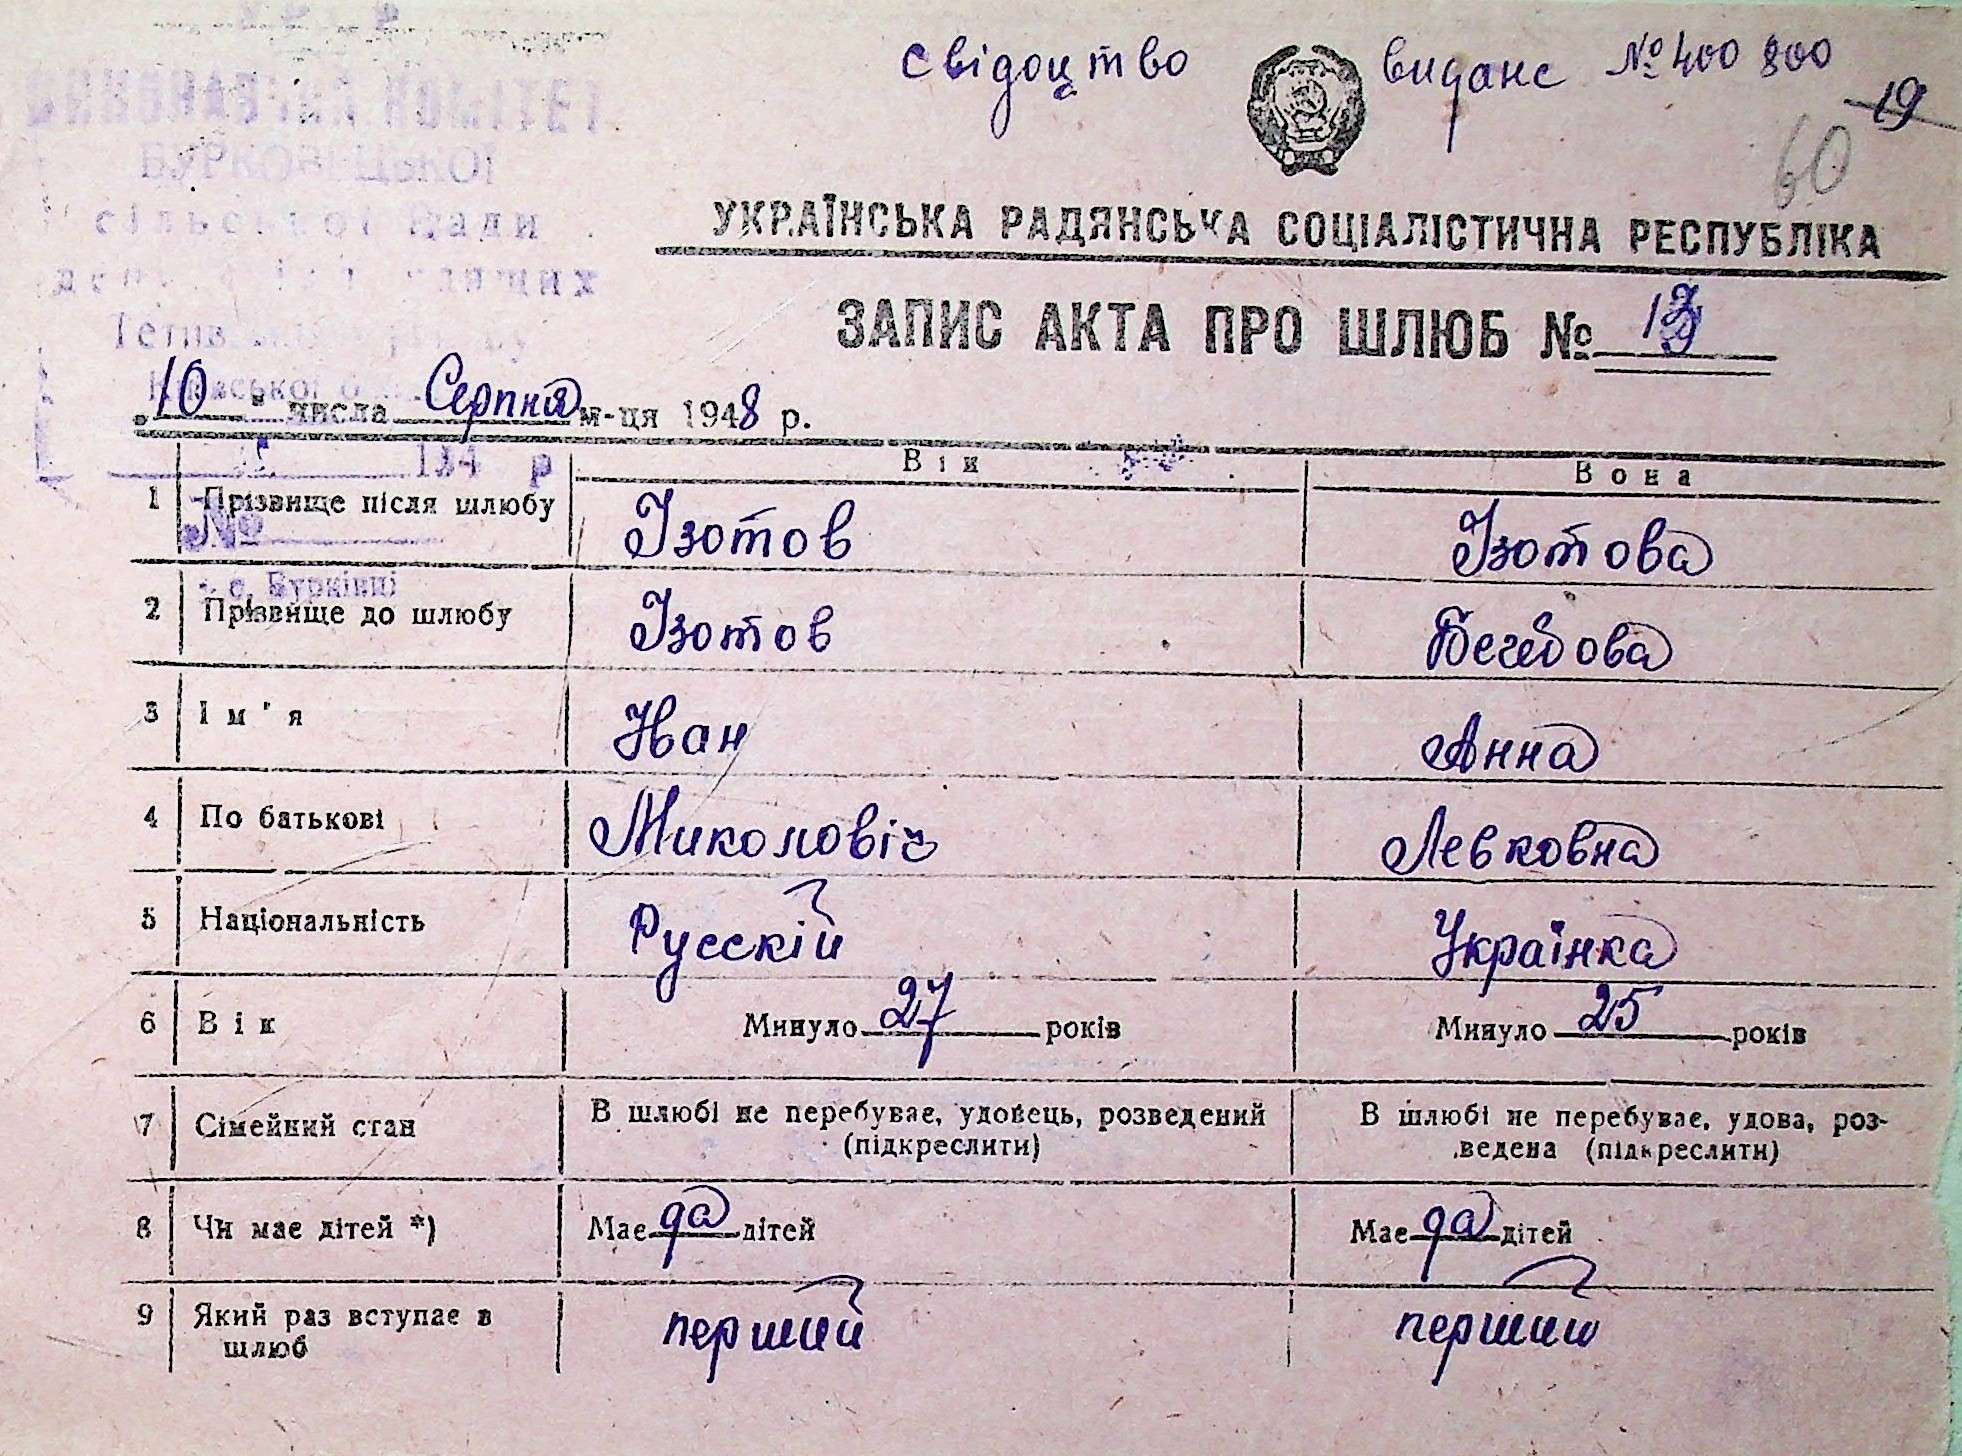 свідоцтво видане № 400 800
19
60
ВИКОНАВЧИЙ КОМІТЕТ
БУРКОВЕЦЬКОЇ
сільської Ради
УКРАЇНСЬКА РАДЯНСЬКА СОЦІАЛІСТИЧНА РЕСПУБЛІКА
ЗАПИС АКТА ПРО ШЛЮБ №
"10" числа Серпня м-ця 1948 р.
194 р
Він Вона
1 Прізвище після шлюбу Ізотов Ізотова
№
с. Бурківці
2 Прізвище до шлюбу Ізотов
3 Ім'я Иван Анна
4 По батькові Миколовіч Левковна
5 Національність Русскій Українка
6 Вік Минуло 27 років Минуло 25 років
7 Сімейний стан В шлюбі не перебуває, удовець, розведений В шлюбі не перебуває, удова, роз-
(підкреслити) ведена (підкреслити)
8 Чи має дітей *) Має да дітей Має да дітей
9 Який раз вступає в перший перший
шлюб